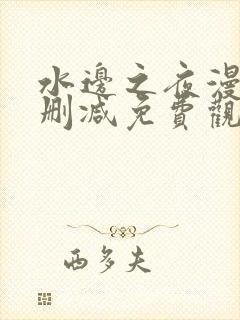 水邊之夜漫
刪減免費觀
西多夫